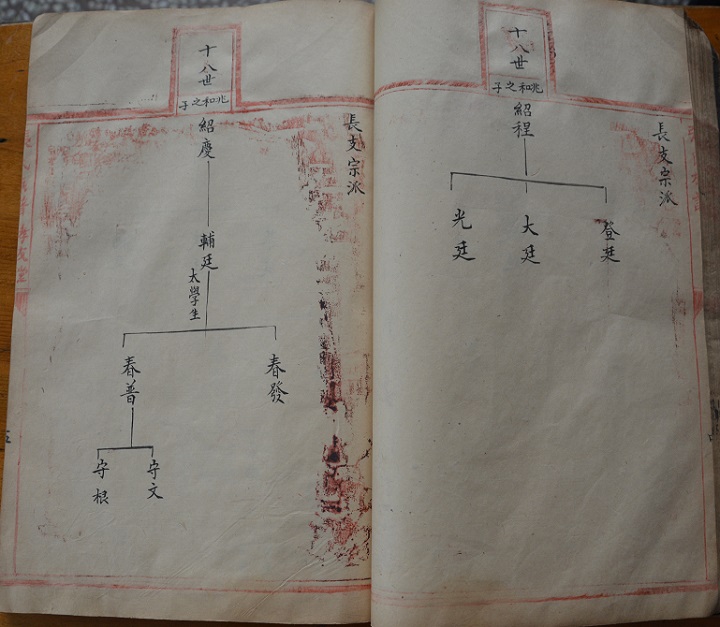 十八世
兆和之子
長支宗派
紹程
登廷
大廷
光廷
十八世
兆和之子
長支宗派
紹慶
輔廷
太學生
春發
春普
守文
守根